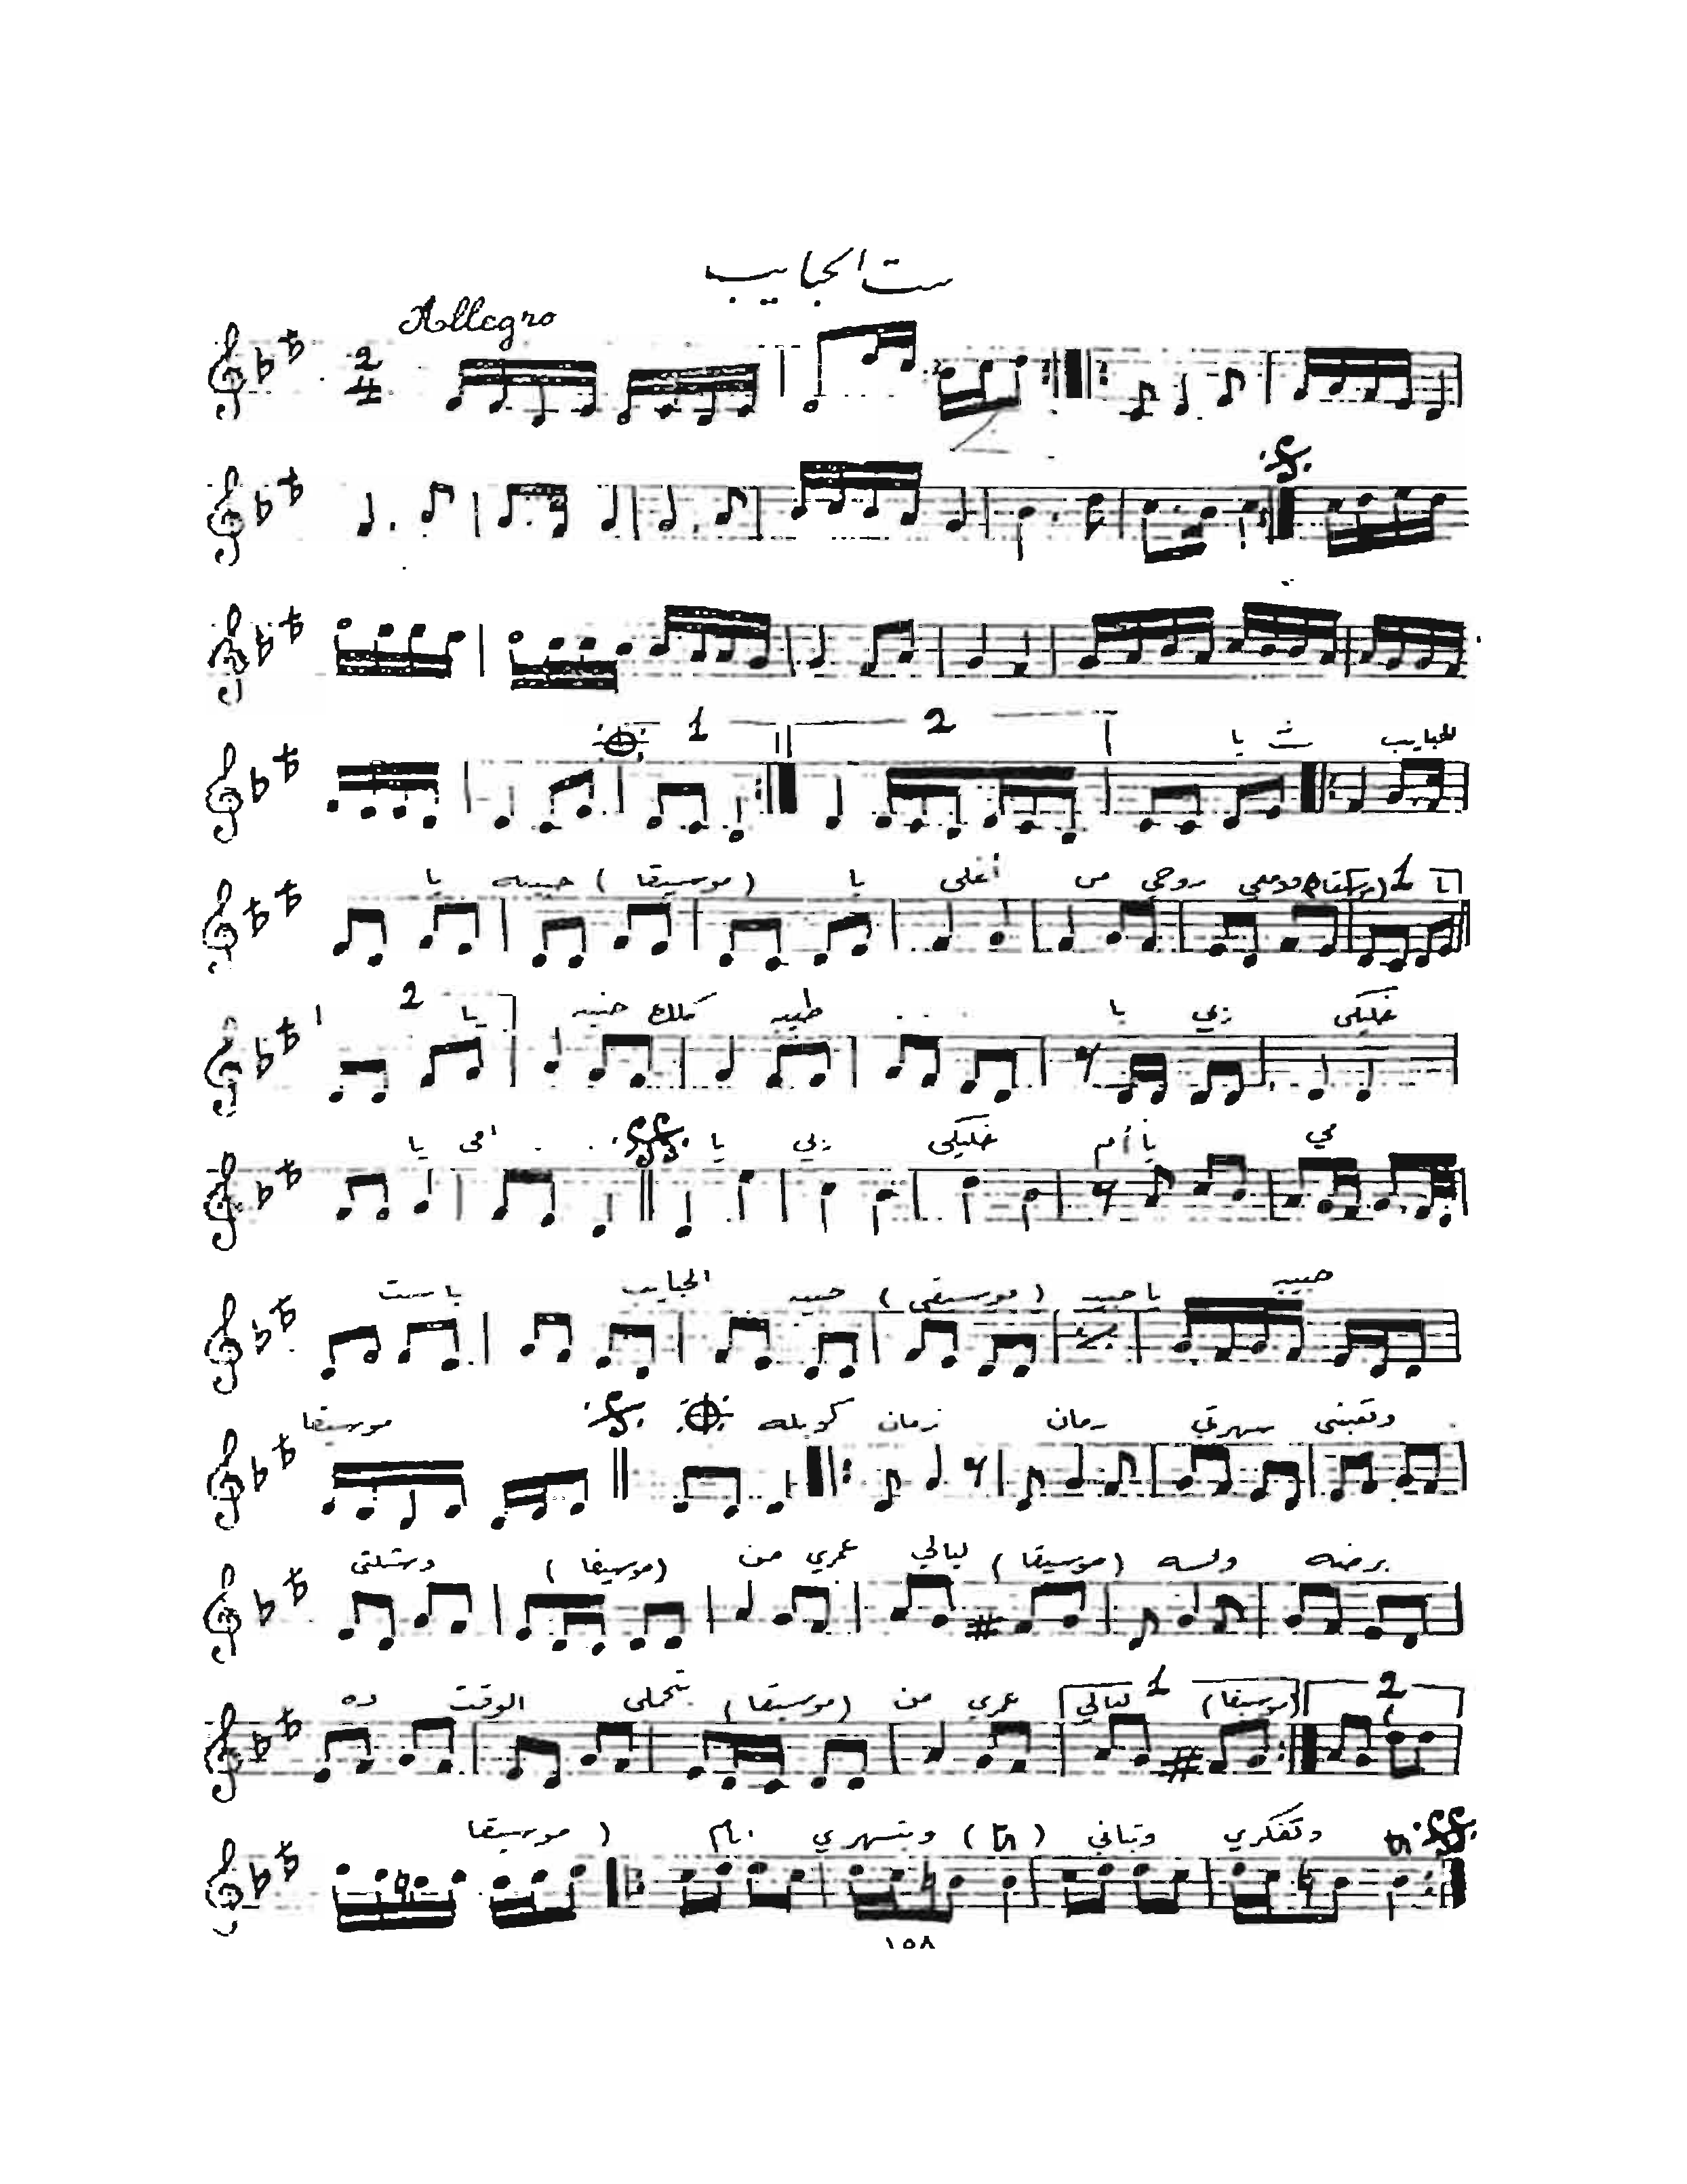 ست الحبايب
Allegro
2
4
1 2 ست يا الحبايب
يا حبيبه (موسيقا) يا أغلى من روحي ودمي (موسيقا) 1 يا
2 يا حنينه وكلك طيبه يا ربي خليكي
يا امي يا ربي خليكي يا أم مي
يا ست الحبايب حبيبه (موسيقى) يا حبيبه
موسيقا كوبليه زمان زمان سهرتي وتعبتي
وشلتي (موسيقا) من عمري ليالي (موسيقا) ولسه برضه
ده الوقت بتحملي (موسيقا) من عمري ليالي 1 (موسيقا) 2
(موسيقا) انام وبتسهري وتباتي وتفكري
١٥٨